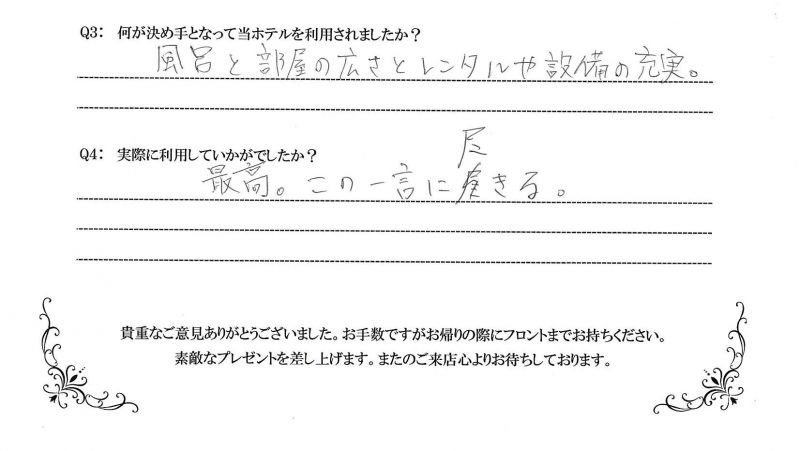 Q3: 何が決め手となって当ホテルを利用されましたか?
風呂と部屋の広さとレンタルや設備の充実。
Q4: 実際に利用していかがでしたか?
最高。この一言に尽きる。
貴重なご意見ありがとうございました。お手数ですがお帰りの際にフロントまでお持ちください。
素敵なプレゼントを差し上げます。またのご来店心よりお待ちしております。